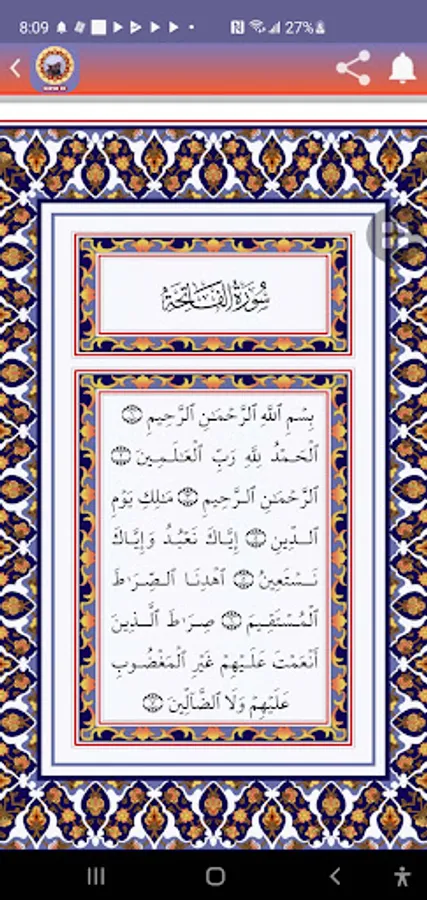 8:09
27%
سُورَةُ الْفَاتِحَةِ
بِسْمِ ٱللَّهِ ٱلرَّحْمَـٰنِ ٱلرَّحِيمِ ١
ٱلْحَمْدُ لِلَّهِ رَبِّ ٱلْعَـٰلَمِينَ ٢
ٱلرَّحْمَـٰنِ ٱلرَّحِيمِ ٣ مَـٰلِكِ يَوْمِ
ٱلدِّينِ ٤ إِيَّاكَ نَعْبُدُ وَإِيَّاكَ
نَسْتَعِينُ ٥ ٱهْدِنَا ٱلصِّرَٰطَ
ٱلْمُسْتَقِيمَ ٦ صِرَٰطَ ٱلَّذِينَ
أَنْعَمْتَ عَلَيْهِمْ غَيْرِ ٱلْمَغْضُوبِ
عَلَيْهِمْ وَلَا ٱلضَّآلِّينَ ٧